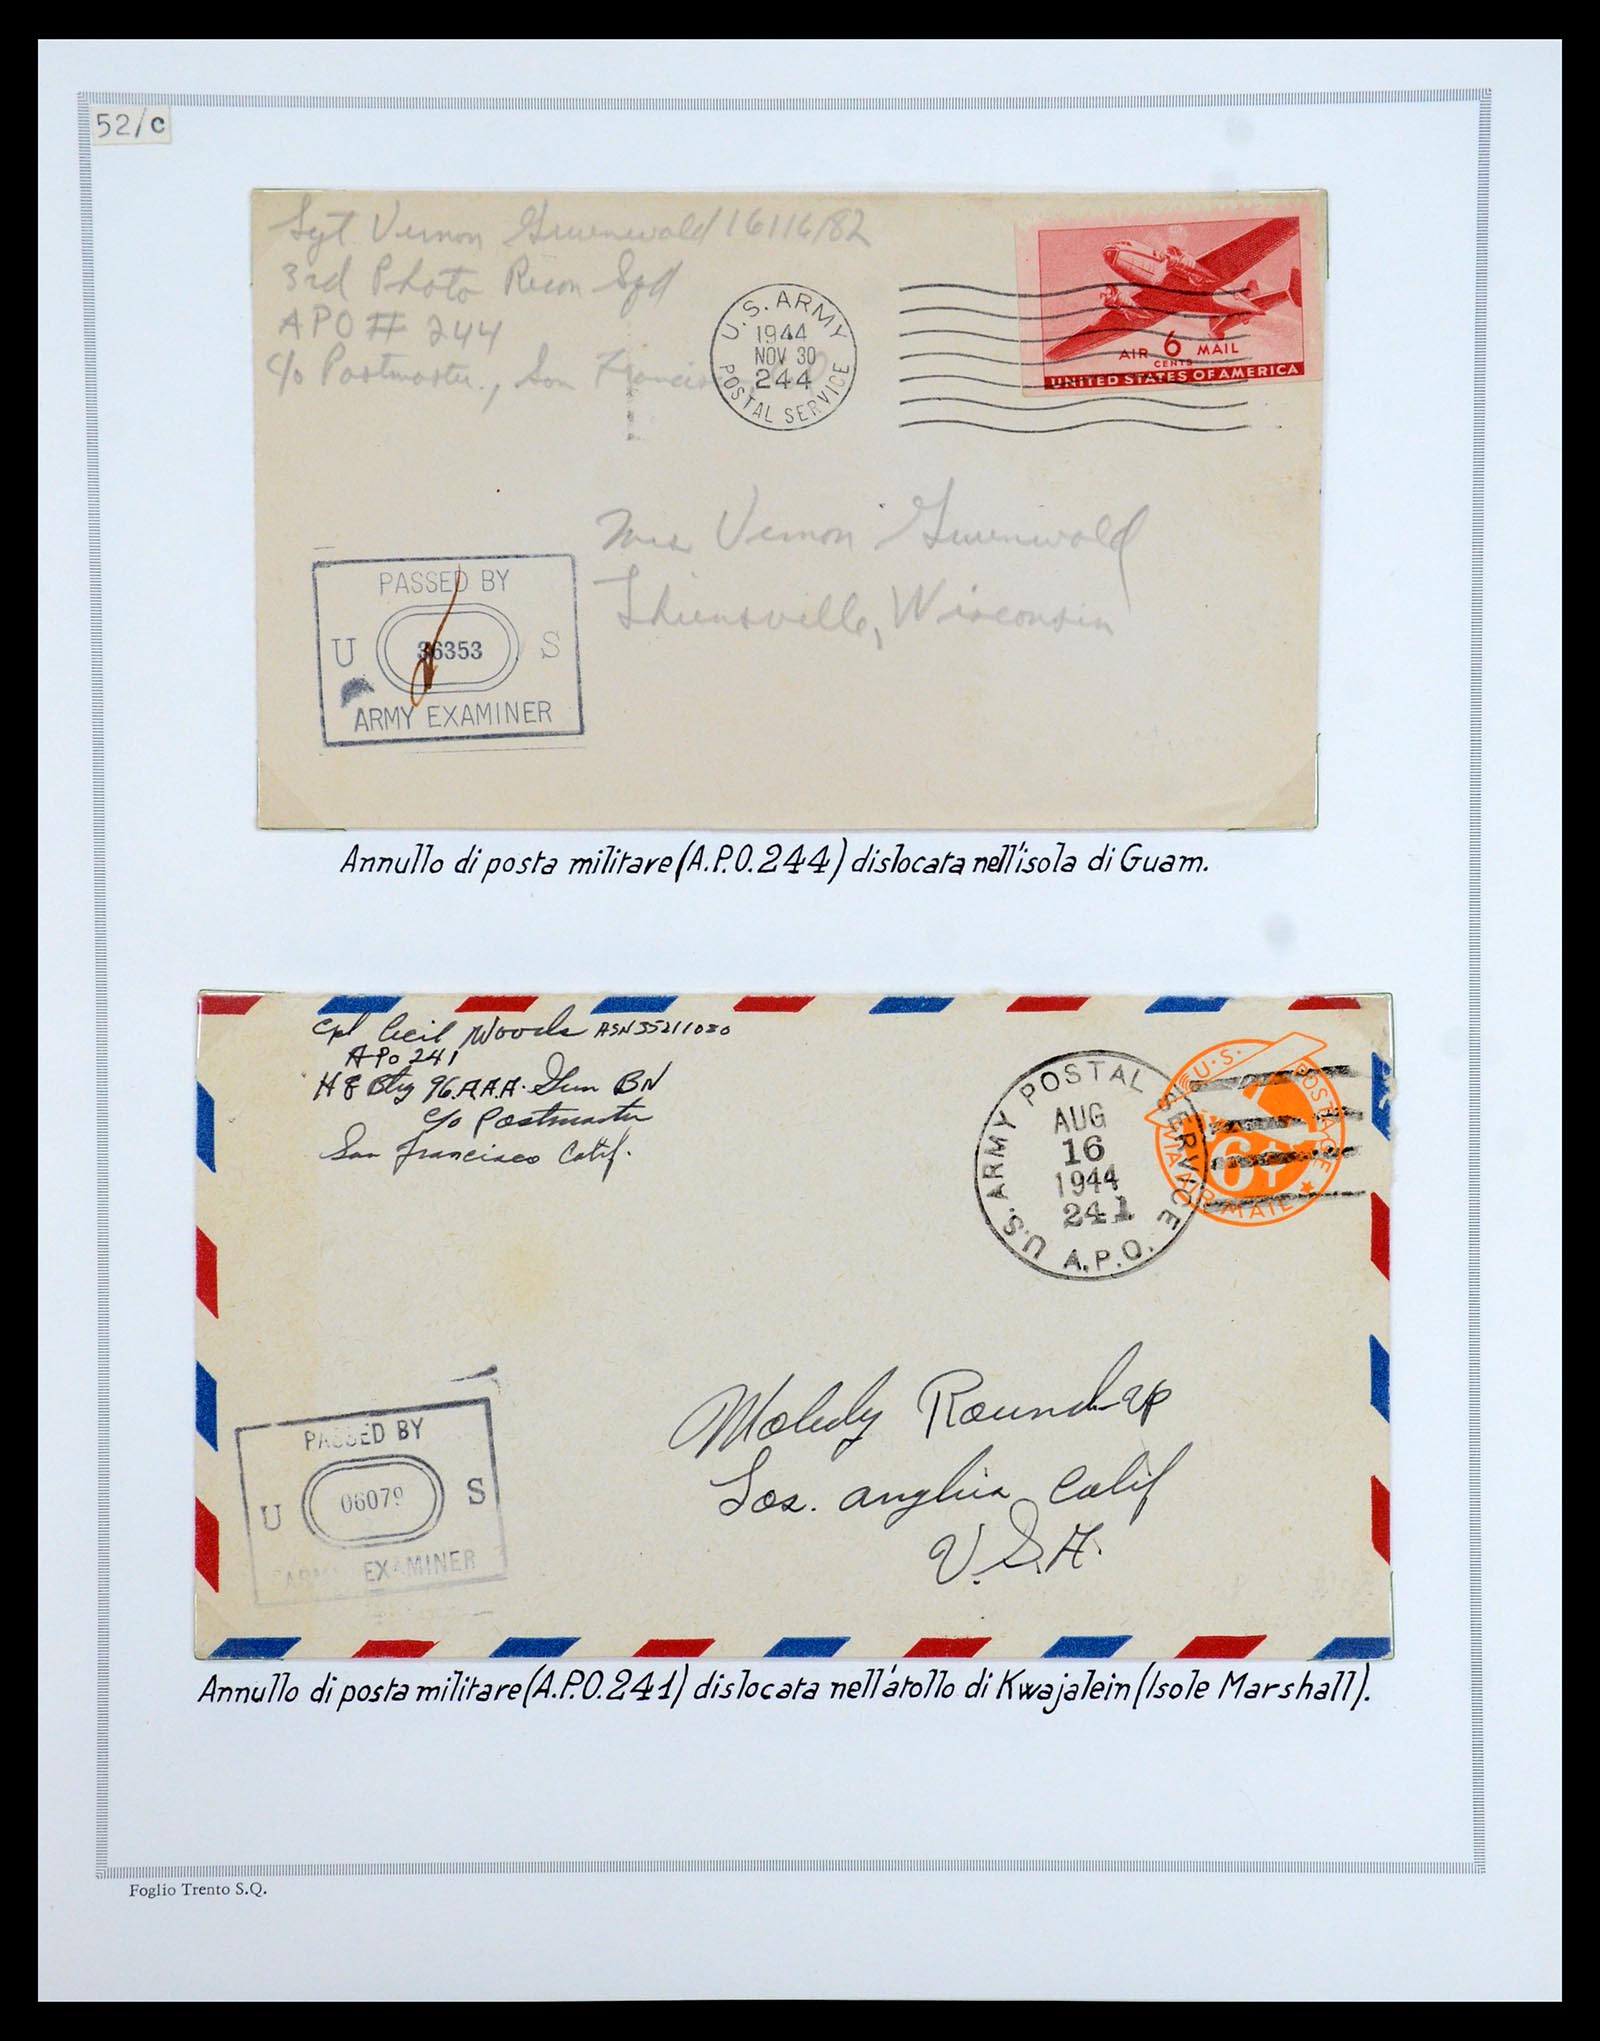 52/c
Sgt Vernon Gruenwald 16116182
3rd Photo Recon Sqd
APO # 244
c/o Postmaster., San Francisco
U.S. ARMY
1944
NOV 30
244
POSTAL SERVICE
AIR 6 MAIL
CENTS
UNITED STATES OF AMERICA
Mrs Vernon Gruenwald
Thiensville, Wisconsin
PASSED BY
U 36353 S
ARMY EXAMINER
Annullo di posta militare (A.P.O. 244) dislocata nell'isola di Guam.
Cpl Cecil Woods ASN 35211080
APO 241
Hq Btry 96.A.A.A. Gun BN
c/o Postmaster
San Francisco Calif.
U.S. ARMY POSTAL SERVICE
AUG
16
1944
241
A.P.O.
U.S. POSTAGE
6¢
VIA AIR MAIL
Melody Round-up
Los. Angeles Calif
U.S.A.
PASSED BY
U 06079 S
ARMY EXAMINER
Annullo di posta militare (A.P.O. 241) dislocata nell'atollo di Kwajalein (Isole Marshall).
Foglio Trento S.Q.